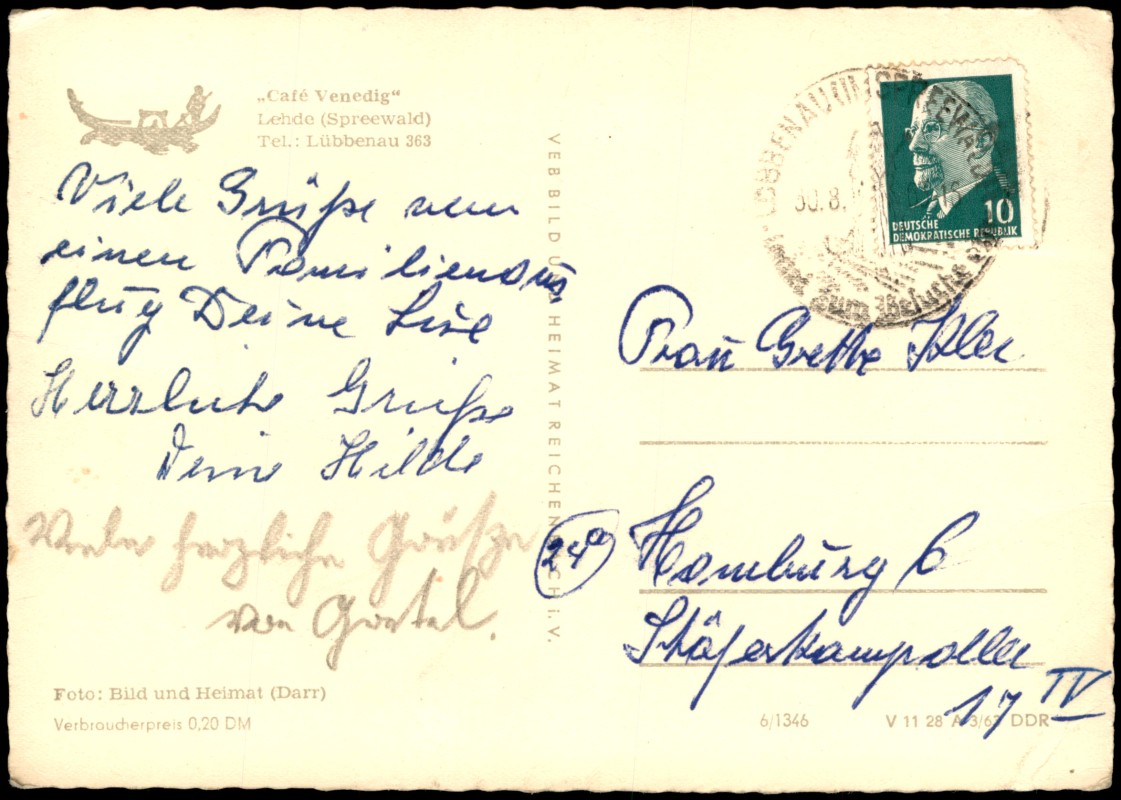 „Café Venedig“
Lehde (Spreewald)
Tel.: Lübbenau 363
Viele Grüße von
einen Familienaus
flug Deine Lise
Herzliche Grüße
Deine Hilde
Viele herzliche Grüße
von
VEB BILD U HEIMAT REICHEN CH i. V.
LÜBBENAU IM SPREEWALD
30.8.
zum Besuche
10
DEUTSCHE
DEMOKRATISCHE REPUBLIK
Frau Grethe
24a
Hamburg 6
Schäferkampallee
17 IV
Foto: Bild und Heimat (Darr)
Verbraucherpreis 0,20 DM
6/1346
V 11 28 A 3/63 DDR